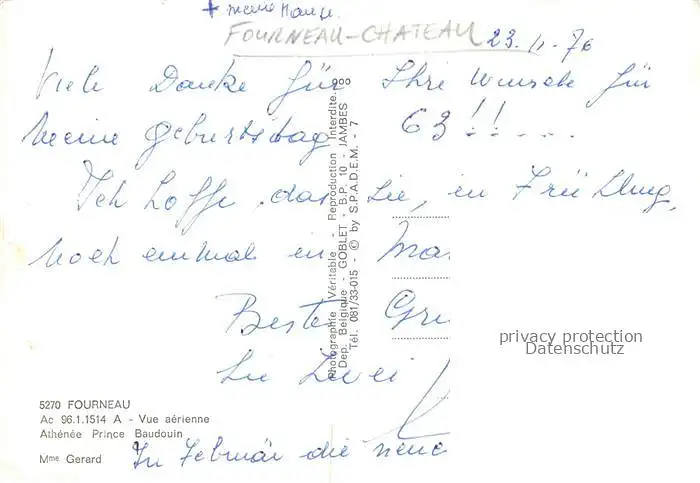 + meine Hause.
FOURNEAU-CHATEAU 23.11.76
Viele Danke für Ihre Wunsche für
meine Geburtstag 63!!....
Ich hoffe, das Sie, in Frühling,
noch einmal in
Beste
Sie Zwei
In Februar die neue
Photographie Véritable - Reproduction Interdite.
Dep. Belgique - GOBLET - B.P. 10 - JAMBES
Tél. 081/33-015 - © by S.P.A.D.E.M. - 7
5270 FOURNEAU
Ac 96.1.1514 A - Vue aérienne
Athénée Prince Baudouin
Mme Gerard
privacy protection
Datenschutz